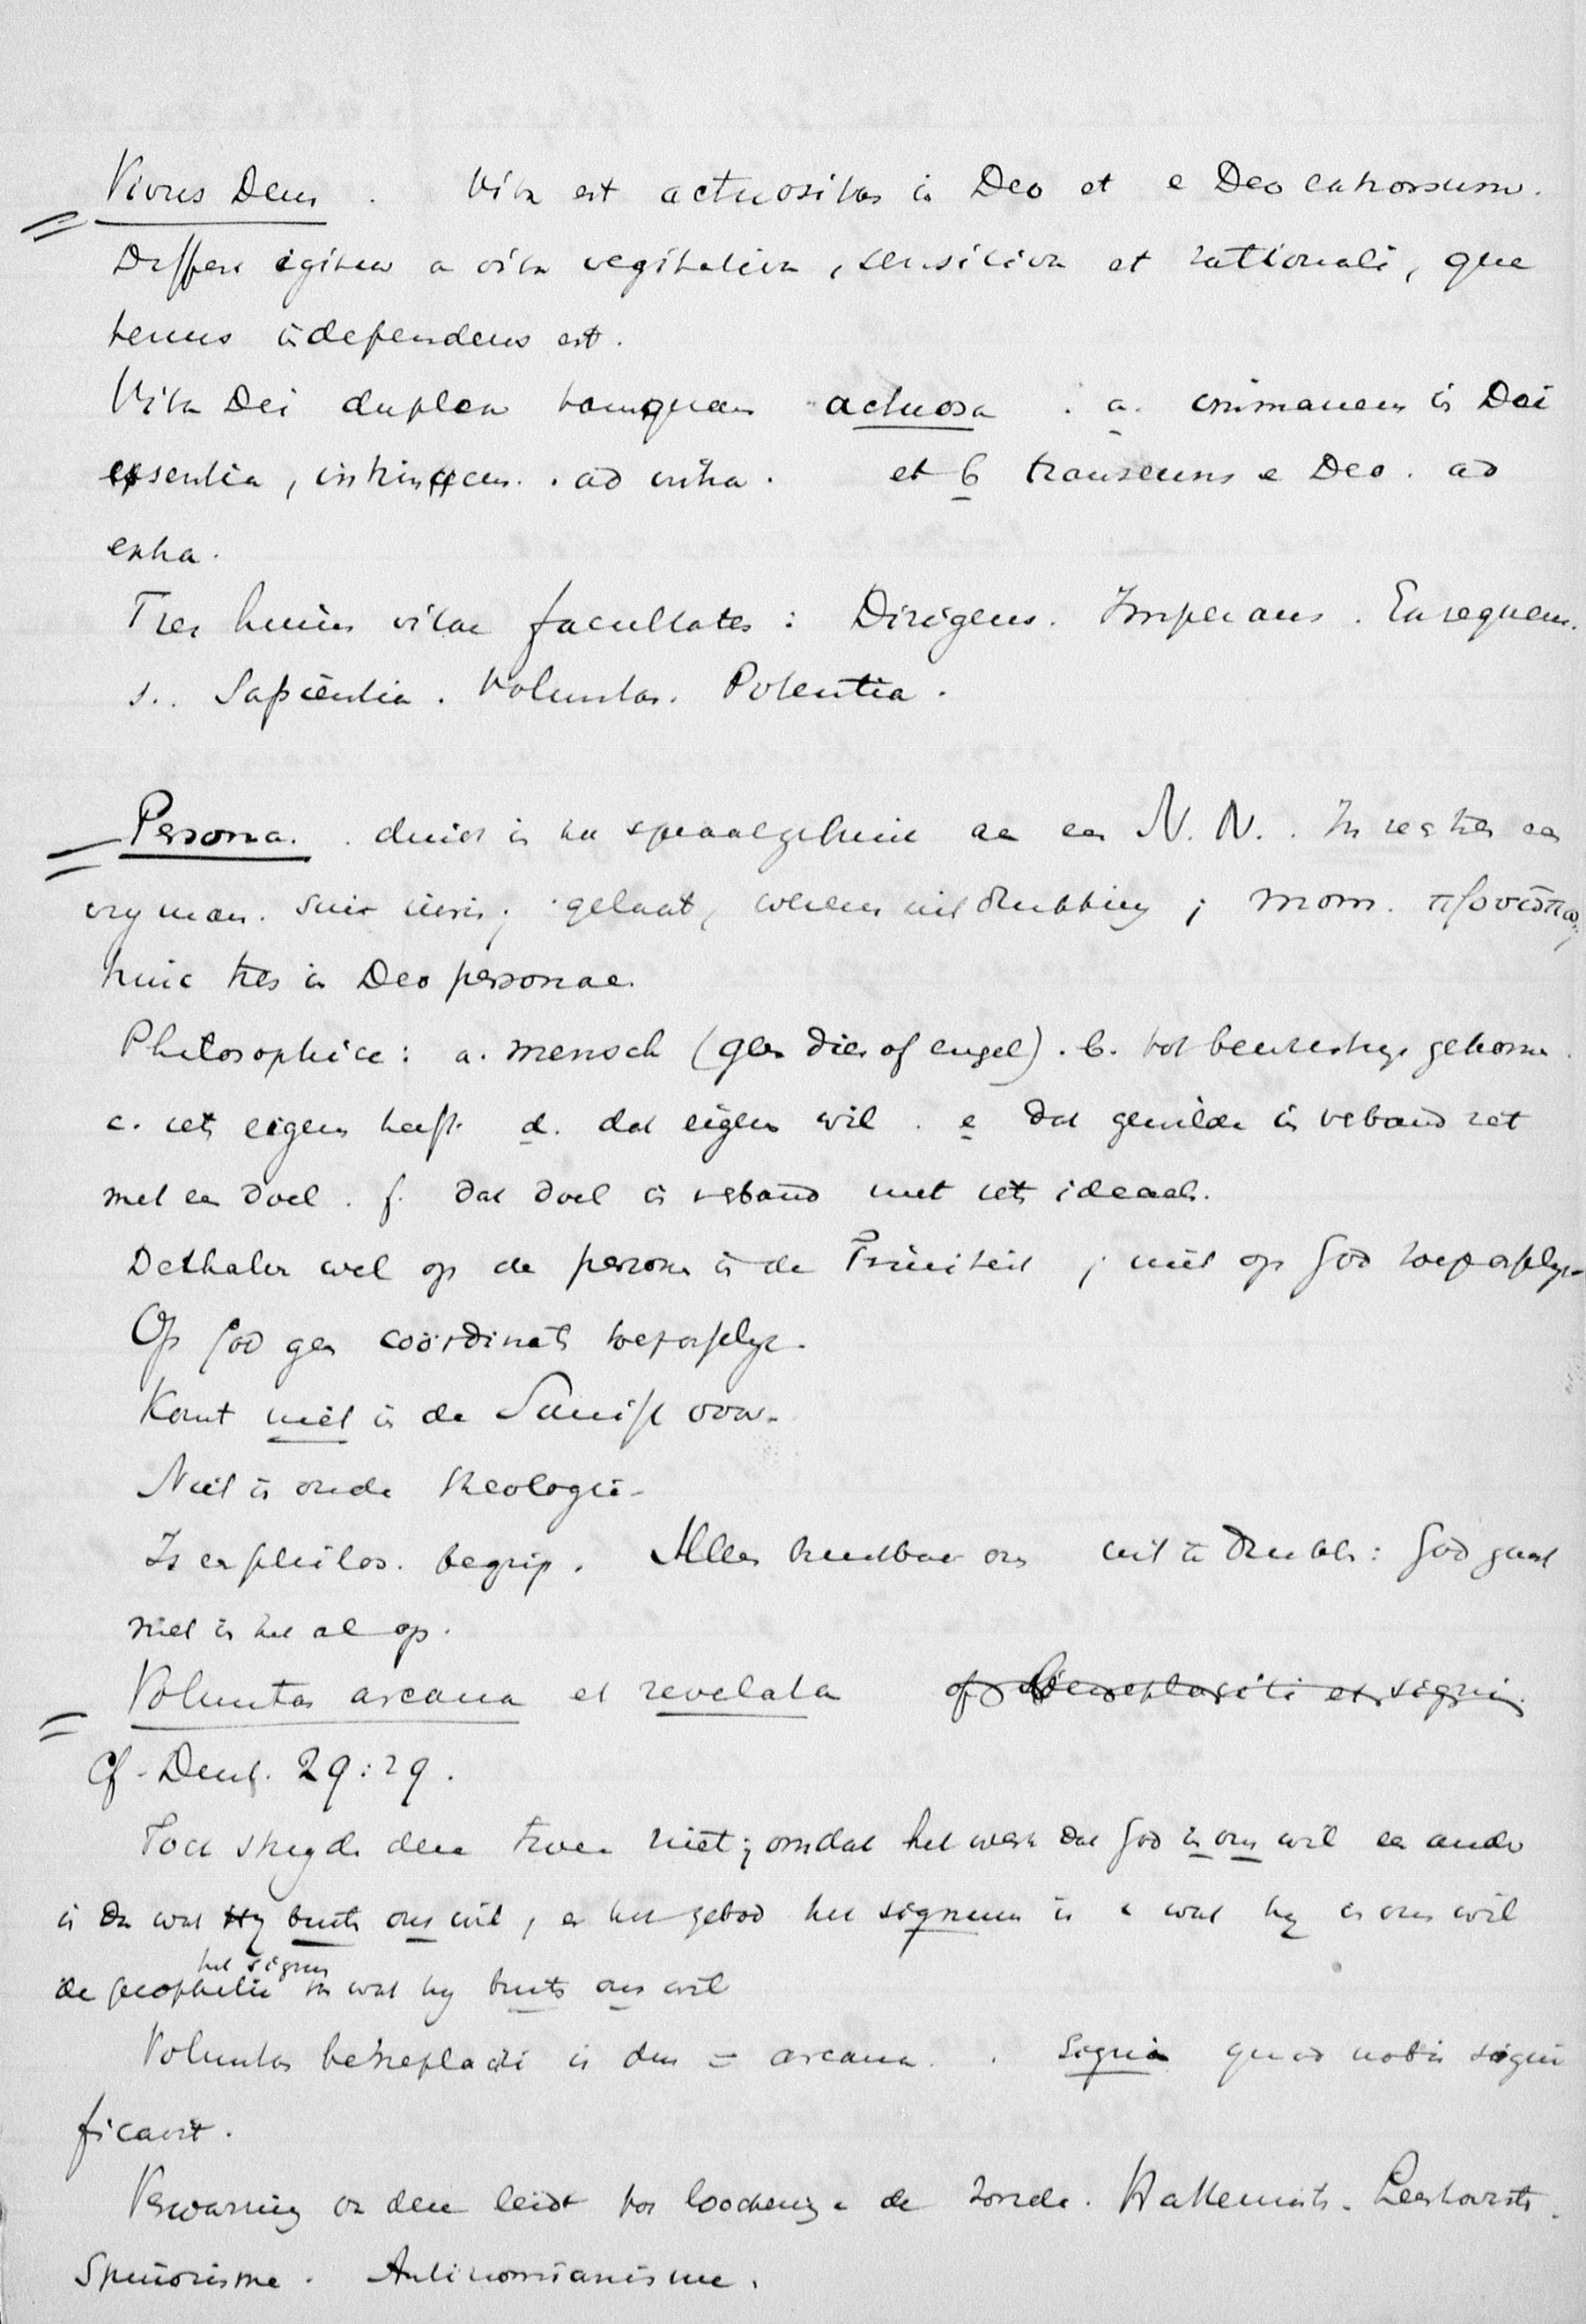 Vivus Deus. Vita est actuositas in Deo et e Deo extrorsum.
Differt igitur a vita vegitativa, sensitiva et rationali, qua
tenus independens est.
Vita Dei duplex tamquam actuosa. a. immanens in Dei
essentia, intrinsecus. ad intra. et b transiens e Deo. ad
extra.
Tres huius vitae facultates: Dirigens. Imperans. Exsequens.
s.. Sapientia. Voluntas. Potentia.
Persona. duidt in het spraakgebruik aan een N.N.. In rechten een
vry man. sui iuris; gelaat, wezens uitdrukking; mom. προσωπον;
hinc tres in Deo personae.
Philosophice: a. mensch (geen dier of engel). b. tot bewustzyn gekomen.
c. iets eigens heeft. d. dat eigen wil. e dat gewilde in verband zet
met een doel. f. dat doel in verband met iets ideaals.
Dethalve wel op de personen in de Triniteit; niet op God toepasselyk
Op God geen coördinaats toepasselyk.
Komt niet in de Schrift voor.
Niet in oude theologie.
Is een philos. begrip. Alleen bruikbaar om uit te drukken: God gaat
niet in het al op.
Voluntas arcana et revelata of Beneplaciti et signi
Cf. Deut. 29:29.
Toch stryden deze twee niet; omdat het werk dat God in ons wil een ander
is dan wat Hy buiten ons wil, en het gebod het signum is van wat hy in ons wil
de prophetie het signum van wat hy buiten ons wil
Voluntas beneplaciti is dus = arcana.. Signi quod nobis signi
ficavit.
Verwarring van deze leidt tot loochening van de zonde. Hattemists.
Spinozisme. Antinomianisme.